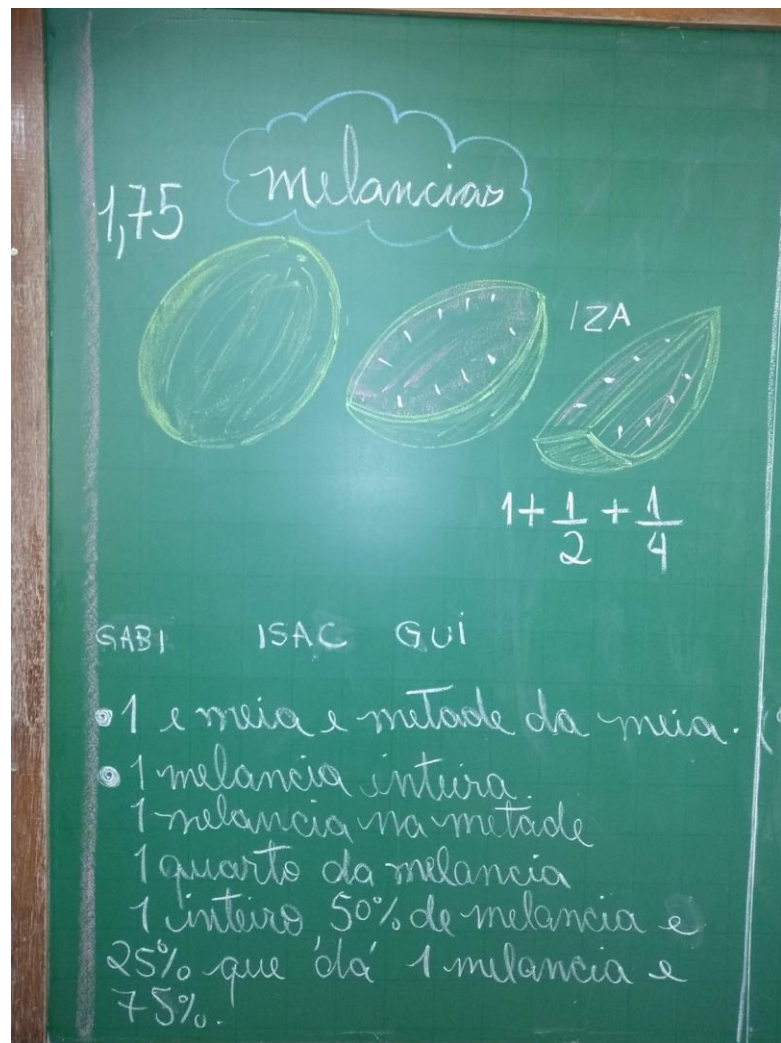 melancias
1,75
IZA
1 + 1/2 + 1/4
GABI ISAC GUI
1 e meia e metade da meia.
1 melancia inteira.
1 melancia na metade
1 quarto da melancia
1 inteiro 50% de melancia e
25% que dá 1 melancia e
75%.